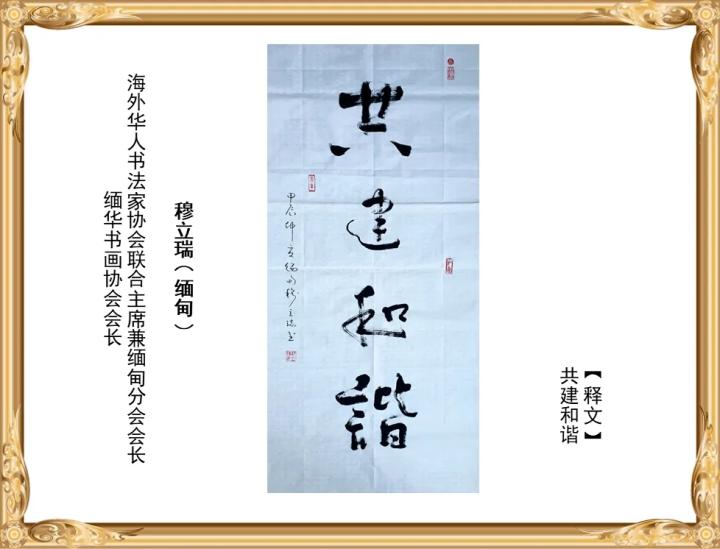 【释文】
共建和谐
共建和諧
甲辰仲夏缅甸穆立瑞书
穆立瑞（缅甸）
海外华人书法家协会联合主席兼缅甸分会会长
缅华书画协会会长